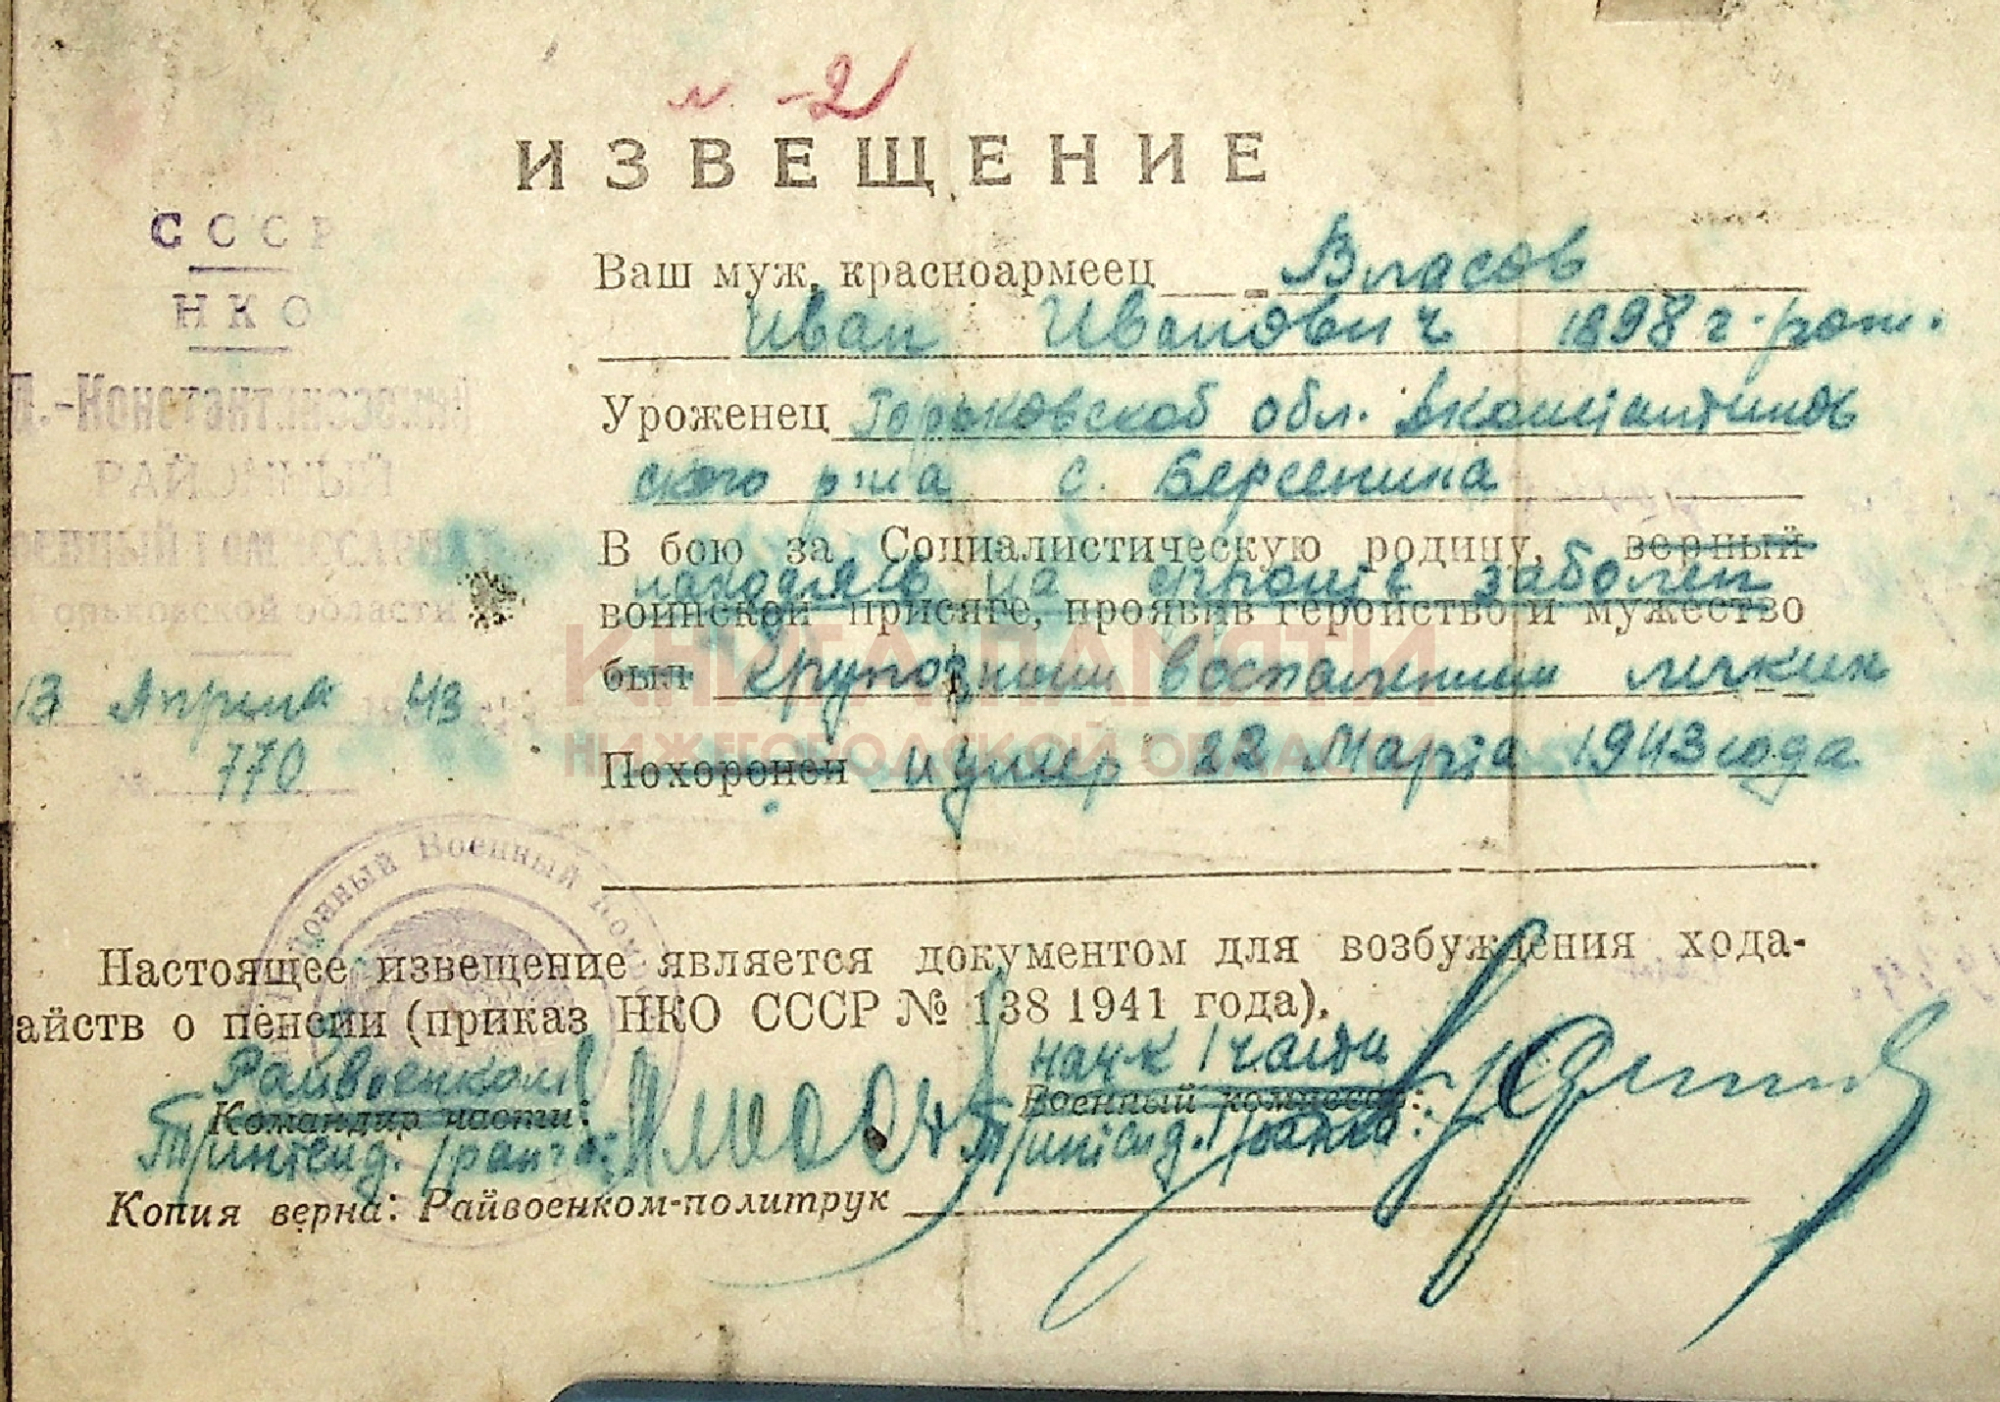 л. -2
ИЗВЕЩЕНИЕ
СССР
НКО
Д.-Константиновский
РАЙОННЫЙ
ВОЕННЫЙ КОМИССАРИАТ
Горьковской области
13 Апреля 1943
№ 770
Ваш муж, красноармеец Власов
Иван Иванович 1898 г. рож.
Уроженец Горьковской обл. Дконстантинов
ского р-на с. Берсенина
В бою за Социалистическую родину, верный
находясь на фронте заболел
воинской присяге, проявив геройство и мужество
был крупозным воспалением легких
Похоронен и умер 22 Марта 1943 года
КНИГА ПАМЯТИ
НИЖЕГОРОДСКОЙ ОБЛАСТИ
Районный Военный Ком
Настоящее извещение является документом для возбуждения хода-
айств о пенсии (приказ НКО СССР № 138 1941 года).
Райвоенком
Командир части:
Т/интенд. I ранга:
нач-к 1 части
Военный комиссар:
Т/интенд. I ранга:
Копия верна: Райвоенком-политрук